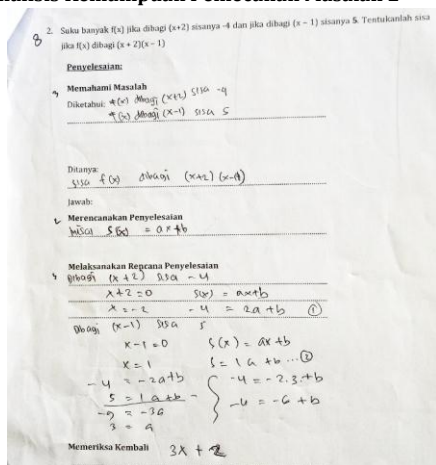 8
2. Suku banyak f(x) jika dibagi (x+2) sisanya -4 dan jika dibagi (x - 1) sisanya 5. Tentukanlah sisa
jika f(x) dibagi (x + 2)(x - 1)
Penyelesaian:
Memahami Masalah
Diketahui: f(x) dibagi (x+2) sisa -4
f(x) dibagi (x-1) sisa 5
Ditanya:
sisa f(x) dibagi (x+2) (x-1)
Jawab:
2 Merencanakan Penyelesaian
Misal S(x) = ax+b
Melaksanakan Rencana Penyelesaian
Dibagi (x+2) sisa -4
x+2=0 S(x) = ax+b
x = -2 -4 = 2a+b ①
Dbagi (x-1) sisa 5
x-1=0 S(x) = ax+b
x=1 5 = 1a +b ...②
-4 = -2a+b { -4 = -2.3.+b
5 = 1a+b - -4 = -6+b
-9 = -3a
3 = a
Memeriksa Kembali 3x + 2